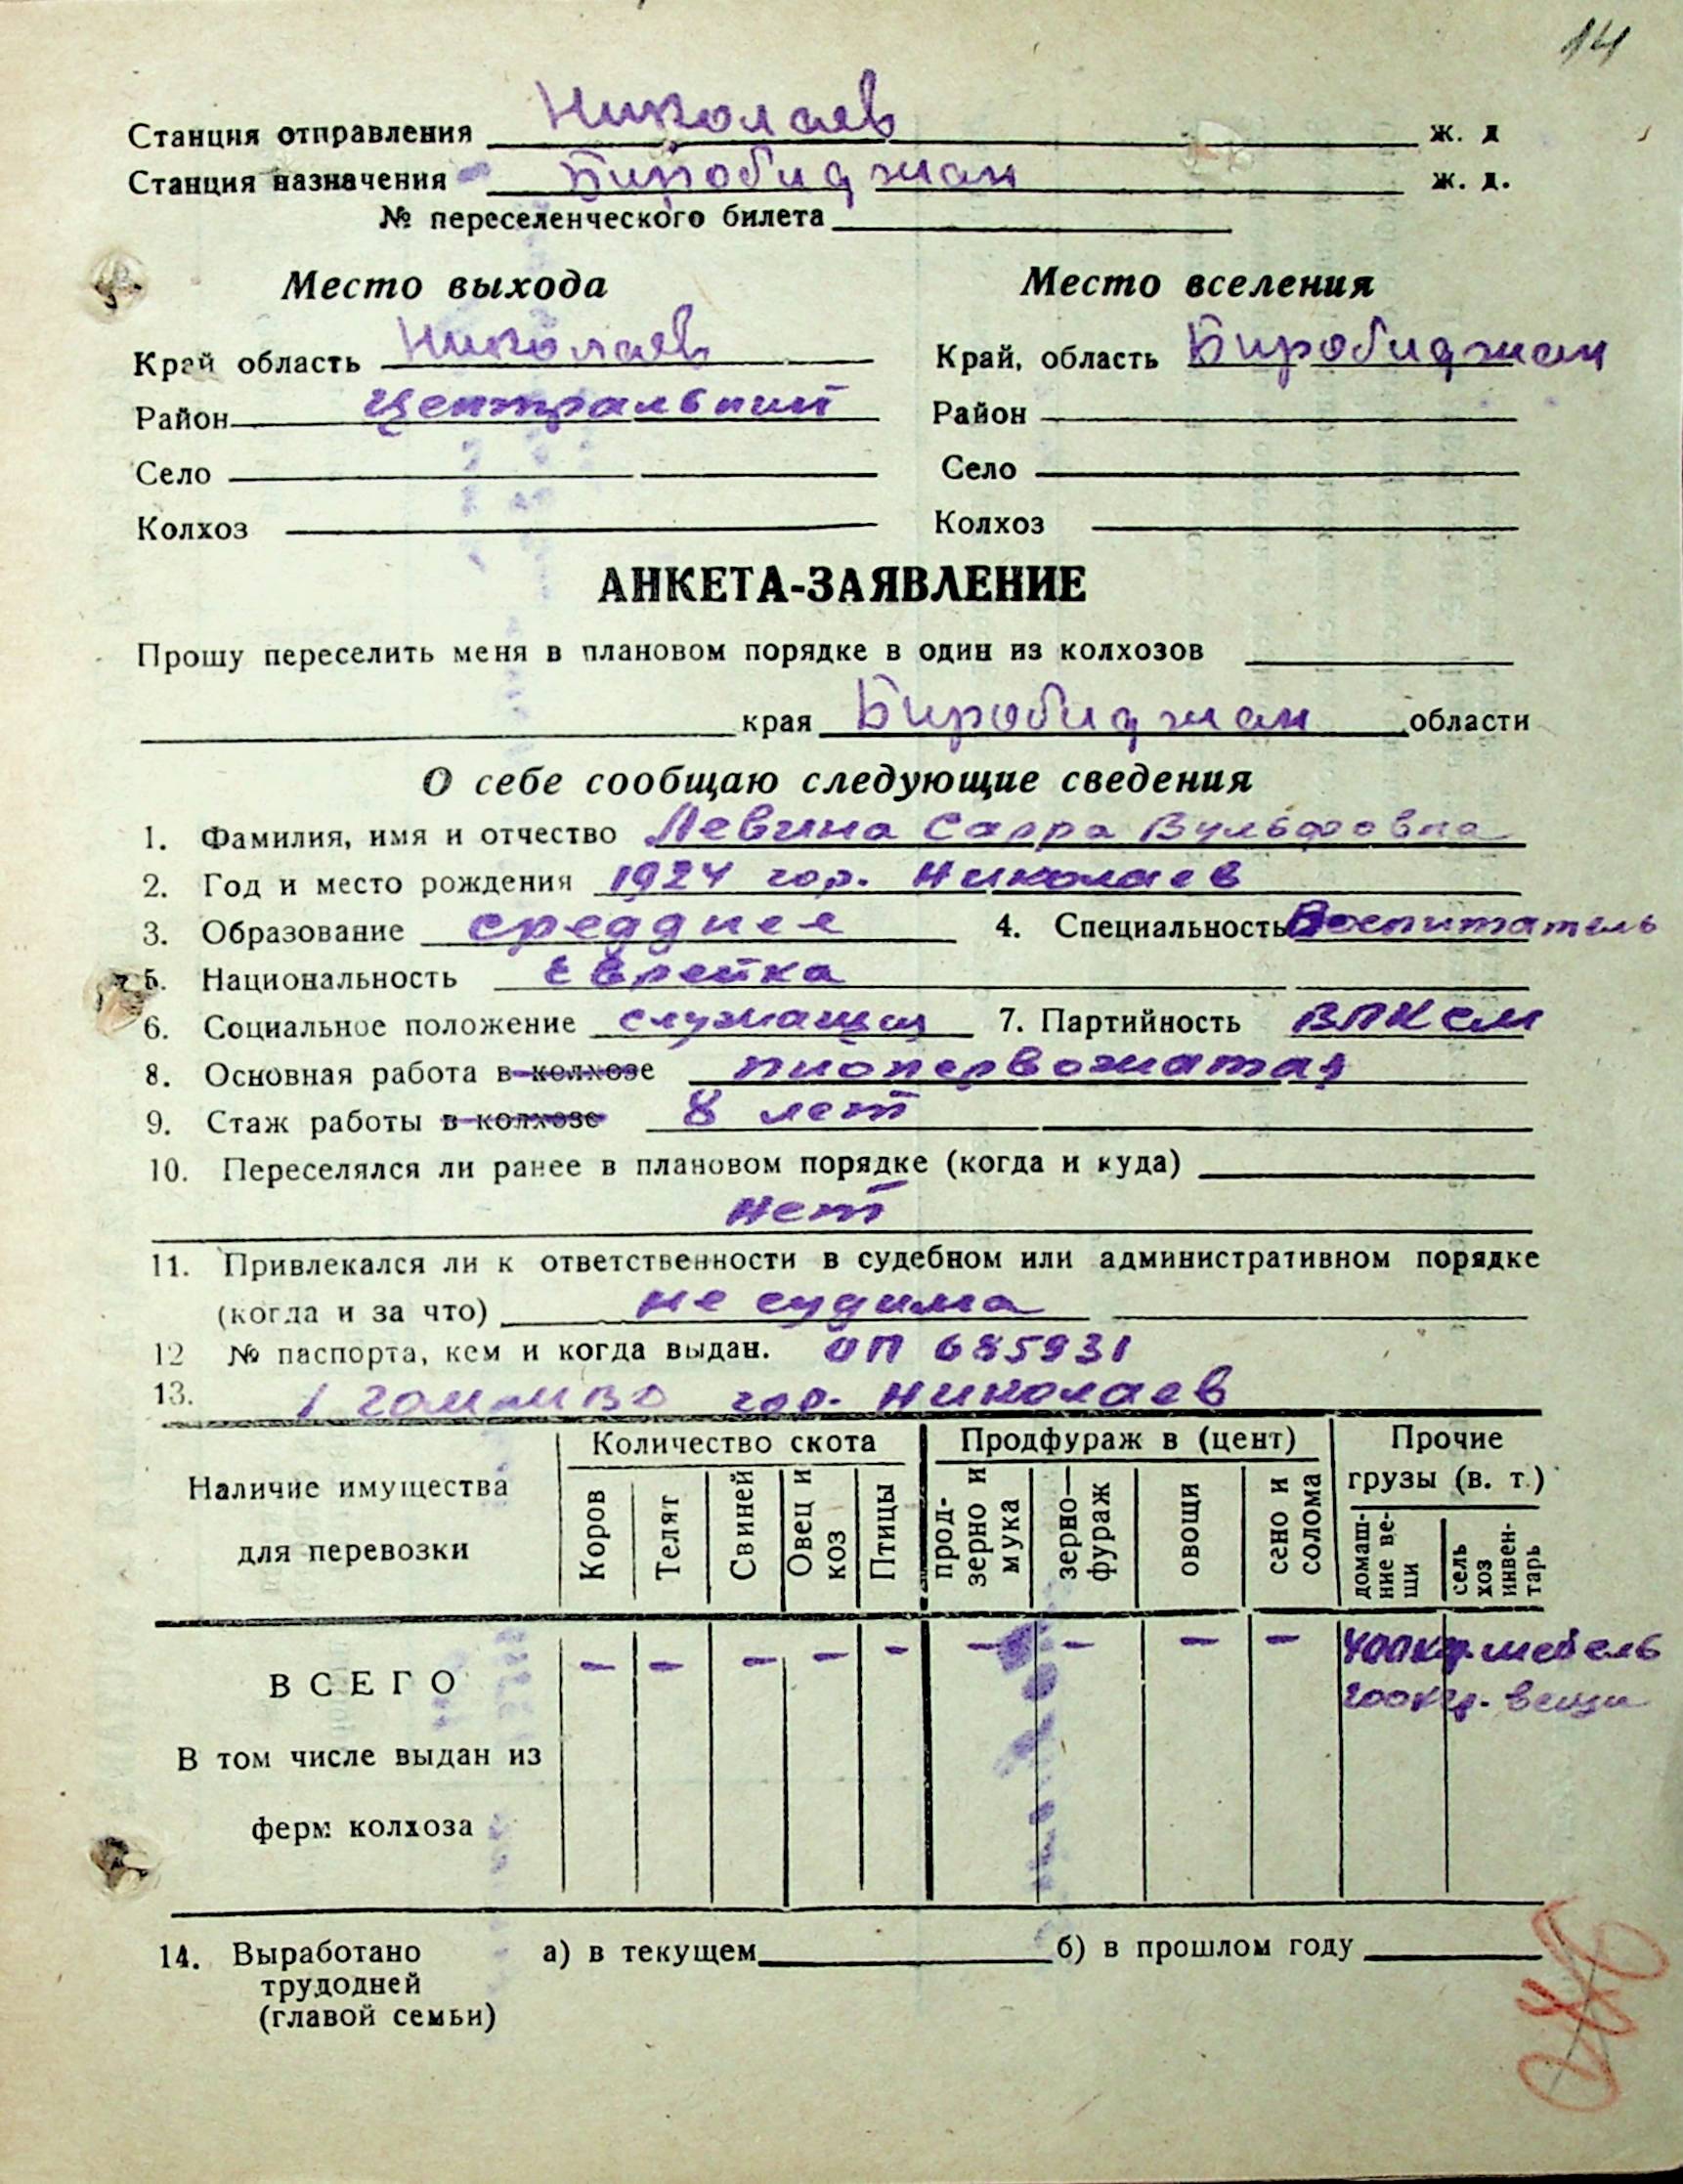 14
Станция отправления Николаев ж. д
Станция назначения Биробиджан ж. д.
№ переселенческого билета
Место выхода Место вселения
Край область Николаев Край, область Биробиджан
Район Центральний Район
Село Село
Колхоз Колхоз
АНКЕТА-ЗАЯВЛЕНИЕ
Прошу переселить меня в плановом порядке в один из колхозов
края Биробиджан области
О себе сообщаю следующие сведения
1. Фамилия, имя и отчество Левина Сарра Вульфовна
2. Год и место рождения 1924 гор. Николаев
3. Образование среднее 4. Специальность Воспитатель
5. Национальность еврейка
6. Социальное положение служащая 7. Партийность ВЛКсм
8. Основная работа в колхозе пионервожатая
9. Стаж работы в колхозе 8 лет
10. Переселялся ли ранее в плановом порядке (когда и куда)
нет
11. Привлекался ли к ответственности в судебном или административном порядке
(когда и за что) не судима
12 № паспорта, кем и когда выдан. 685931
13. 1 гом МВД гор. Николаев
Наличие имущества для перевозки
Количество скота
Коров Телят Свиней Овец и коз Птицы
Продфураж в (цент)
прод-зерно и мука зерно—фураж овощи сено и солома
Прочие грузы (в. т.)
домаш-ние ве-щи сель хоз инвен-тарь
ВСЕГО - - - - - - - - - 400кгр. мебель
200кгр. вещи
В том числе выдан из
ферм колхоза
14. Выработано а) в текущем б) в прошлом году
трудодней
(главой семьи)